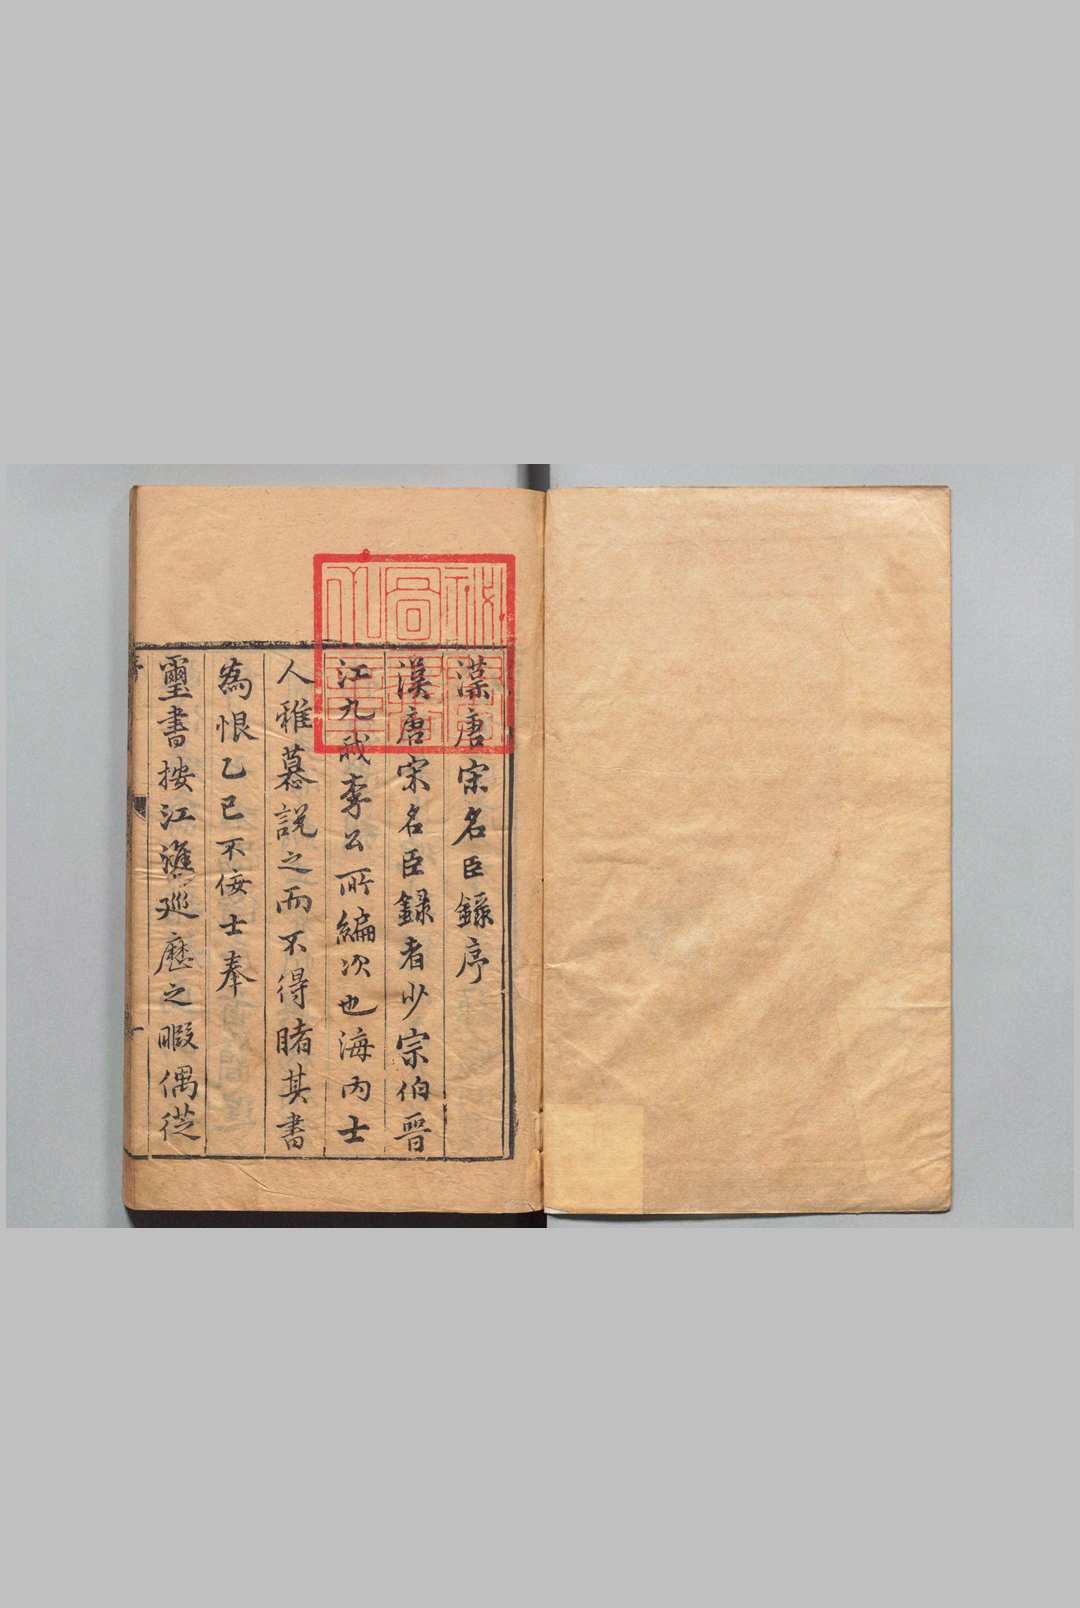 漢唐宋名臣錄序
漢唐宋名臣錄者少宗伯晉
江九我李公所編次也海內士
人雅慕說之而不得睹其書
為恨乙巳不佞士奉
璽書按江淮巡歷之暇偶從
序
一